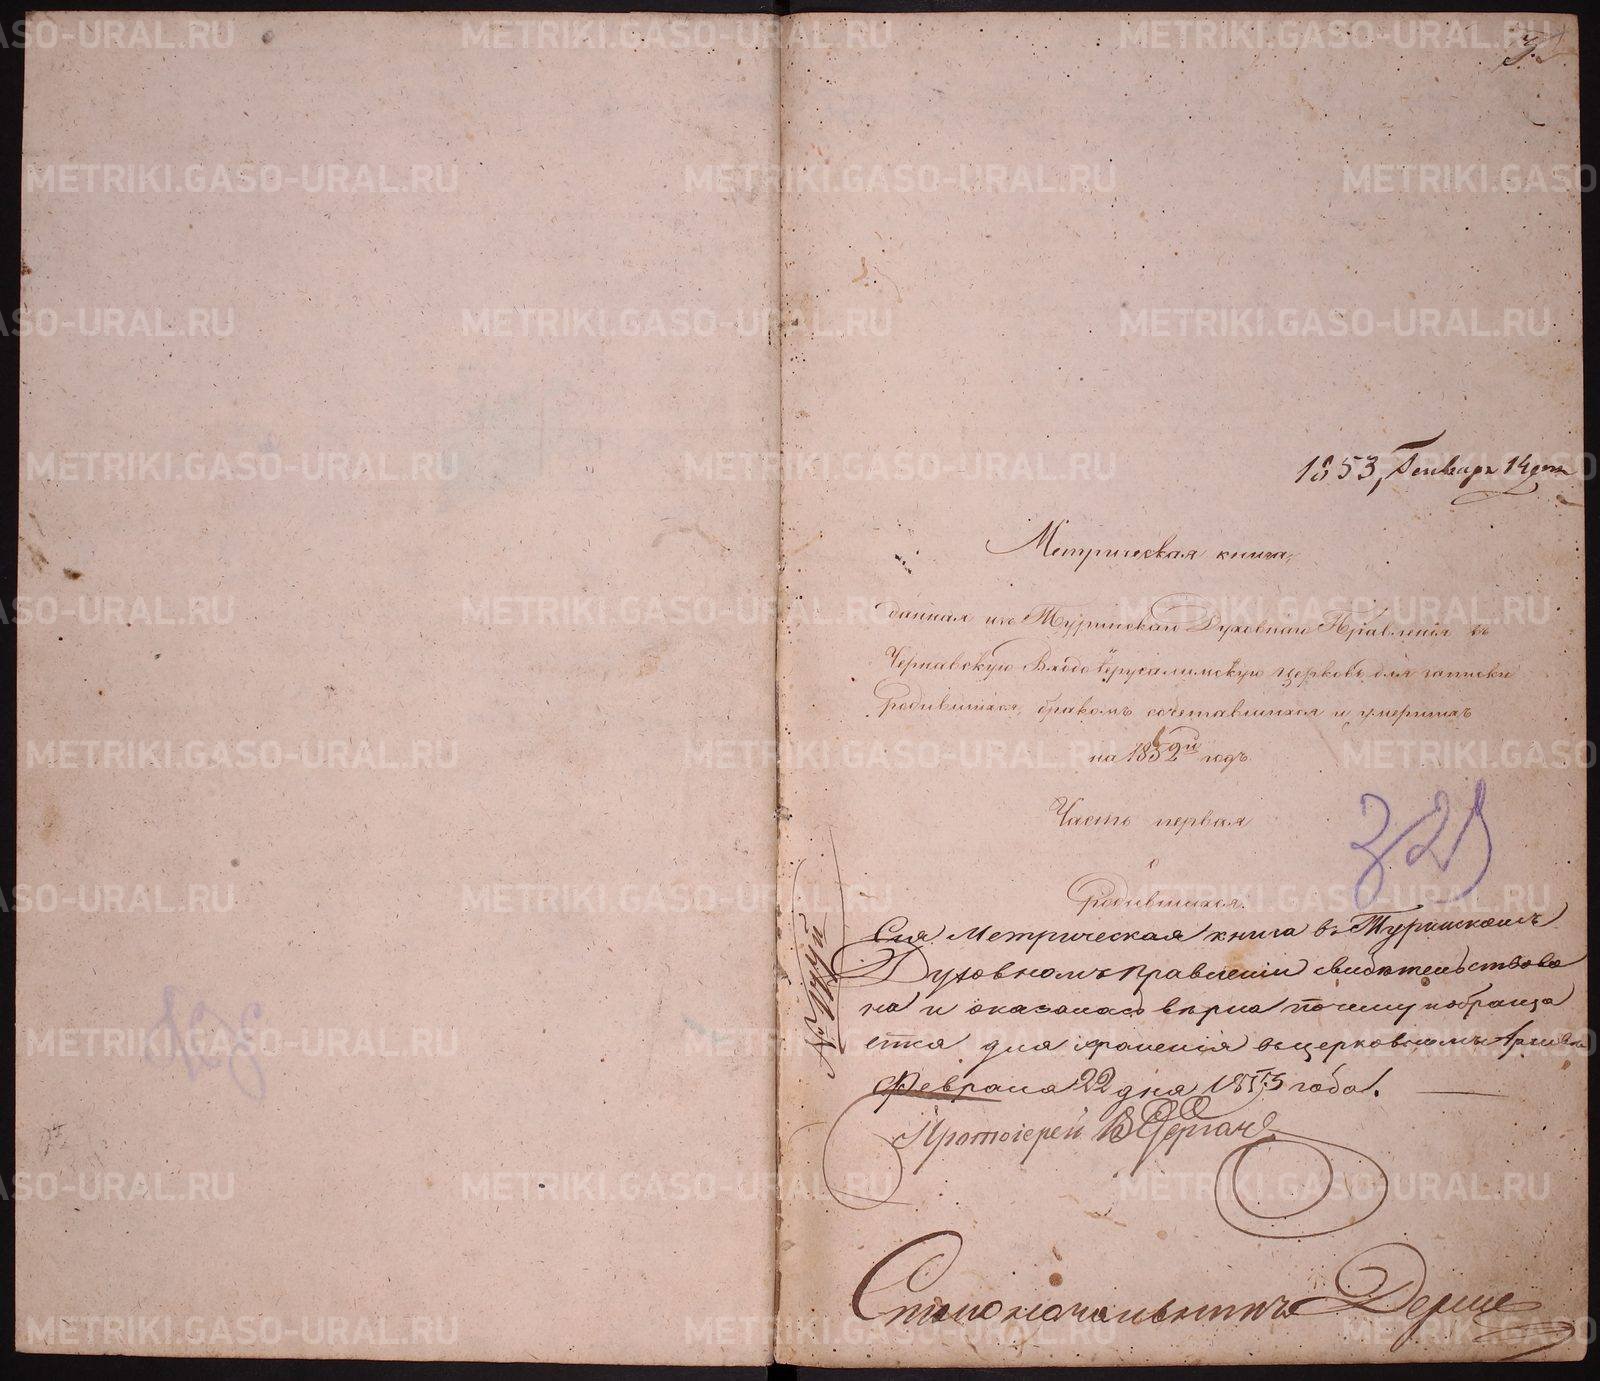 1853, Генваря 14 дня
Метрическая книга,
данная изъ Туринскаго Духовнаго Правленія въ
Чернавскую Входо Іерусалимскую церковь для записки
родившихся, бракомъ сочетавшихся и умершихъ
на 1852й годъ.
Часть первая
о
родившихся.
321
Сия Метрическая книга въ Туринскомъ
Духовномъ правленіи свидѣтельствова
на и оказалась вѣрна почему и обраща
ется для храненія въ церковномъ Архивѣ
Февраля 22 дня 1853 года.
Протоіерей
Столоначальникъ
METRIKI.GASO-URAL.RU